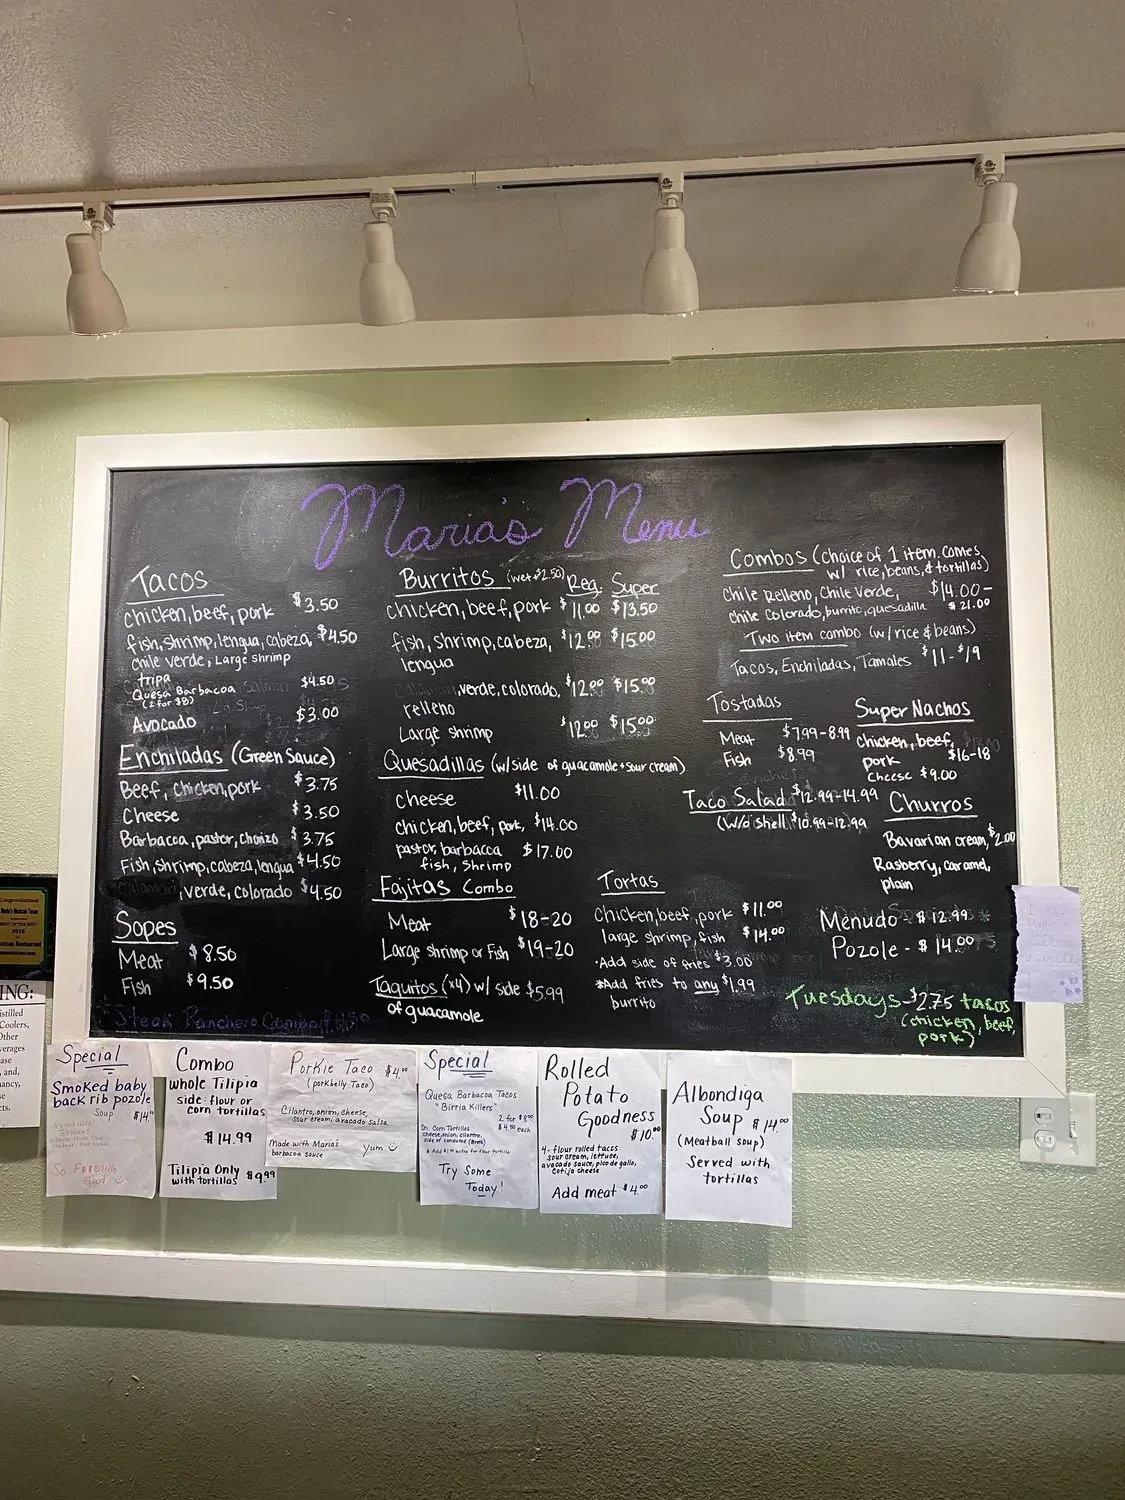 Maria's Menu
Tacos
chicken, beef, pork $3.50
fish, shrimp, lengua, cabeza, $4.50
chile verde, Large Shrimp
tripa
Quesa Barbacoa $4.50
(2 for $8)
Avocado $3.00
Enchiladas (Green Sauce)
Beef, chicken, pork $3.75
Cheese $3.50
Barbacoa, pastor, chorizo $3.75
Fish, shrimp, cabeza, lengua $4.50
, verde, colorado $4.50
Sopes
Meat $8.50
Fish $9.50
Steak Ranchero Combo
Burritos (wet +$2.50) Reg. Super
chicken, beef, pork $11.00 $13.50
fish, shrimp, cabeza, $12.00 $15.00
lengua
, verde, colorado, $12.00 $15.00
relleno
Large shrimp $12.00 $15.00
Quesadillas (w/side of guacamole + sour cream)
cheese $11.00
chicken, beef, pork, $14.00
pastor, barbacoa $17.00
fish, Shrimp
Fajitas Combo
Meat $18-20
Large shrimp or Fish $19-20
Taquitos (x4) w/ side $5.99
of guacamole
Combos (choice of 1 item. comes
w/ rice, beans, & tortillas)
Chile Relleno, Chile Verde, $14.00-
chile colorado, burrito, quesadilla $21.00
Two item combo (w/rice & beans)
Tacos, Enchiladas, Tamales $11-$19
Tostadas
Meat $7.99-8.99
Fish $8.99
Super Nachos
chicken, beef,
pork $16-18
Cheese $9.00
Taco Salad $12.99-14.99
(W/o shell $10.99-12.99
Churros
Bavarian cream, $2.00
Rasberry, caramel,
plain
Tortas
chicken, beef, pork $11.00
large shrimp, fish $14.00
•Add side of fries $3.00
*Add fries to any $1.99
burrito
Menudo - $12.99
Pozole - $14.00
Tuesdays $2.75 tacos
(chicken, beef,
pork)
Special
Smoked baby
back rib pozole
Soup $14.
Good
Combo
whole Tilipia
side: flour or
corn tortillas
$14.99
Tilipia Only
with tortillas $9.99
Porkie Taco $4.00
(porkbelly Taco)
Cilantro, onion, cheese,
sour cream, avocado salsa
Made with Maria's
barbacoa sauce Yum
Special
Quesa Barbacoa Tacos
"Birria Killers"
2 for $8.00
On: Corn Tortillas $4.50 each
cheese, onion, cilantro,
side of consume (Broth)
Try Some
Today!
Rolled
Potato
Goodness
$10.00
4- flour rolled tacos
sour cream, lettuce,
avocado sauce, pico de gallo,
cotija cheese
Add meat $4.00
Albondiga
Soup $14.00
(Meatball soup)
Served with
tortillas
ING:
istilled
Coolers,
Other
verages
ase
and,
nancy,
cts.
Congratulations!
2018